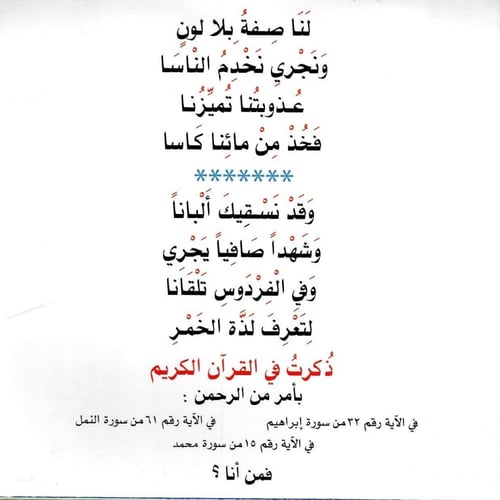 لَنَا صِفةُ بِلا لونٍ
وَنَجْرِي نَخْدِمُ النْاسَا
عُـذوبتُنا تُميِّزُنـا
فَخُذْ مِنْ مائِنا كَاسا
*******
وَقَدْ نَسْـقِيكَ أَلْباناً
وَشَهْداً صَافِياً يَجْرِي
وَفِي الْفِرْدَوسِ تَلْقَانا
لِتَعْرِفَ لَذَّةَ الخَمْرِ
ذُكرتُ في القرآن الكريم
بأمر من الرحمن :
في الآية رقم ٣٢ من سورة إبراهيم في الآية رقم ٦١ من سورة النمل
في الآية رقم ١٥ من سورة محمد
فمن أنا ؟